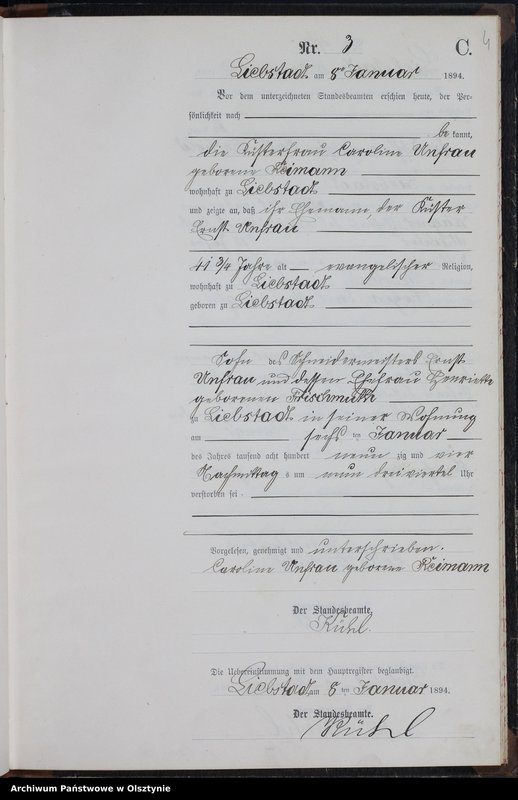 Nr. 3 C. 4
Liebstadt am 8ten Januar 1894.
Vor dem unterzeichneten Standesbeamten erschien heute, der Per-
sönlichkeit nach
be kannt,
die Küsterfrau Caroline Unfrau
geborene Reimann
wohnhaft zu Liebstadt
und zeigte an, daß ihr Ehemann, der Küster
Ernst Unfrau
41 3/4 Jahre alt evangelischer Religion,
wohnhaft zu Liebstadt
geboren zu Liebstadt
Sohn des Schneidermeisters Ernst
Unfrau und dessen Ehefrau Henriette
geborenen Frischmuth
zu Liebstadt in seiner Wohnung
am sechs ten Januar
des Jahres tausend acht hundert neun zig und vier
Nachmittag s um neun dreiviertel Uhr
verstorben sei.
Vorgelesen, genehmigt und unterschrieben.
Caroline Unfrau geborene Reimann
Der Standesbeamte.
Kühl.
Die Uebereinstimmung mit dem Hauptregister beglaubigt.
Liebstadt am 8 ten Januar 1894.
Der Standesbeamte.
Kühl
Archiwum Państwowe w Olsztynie